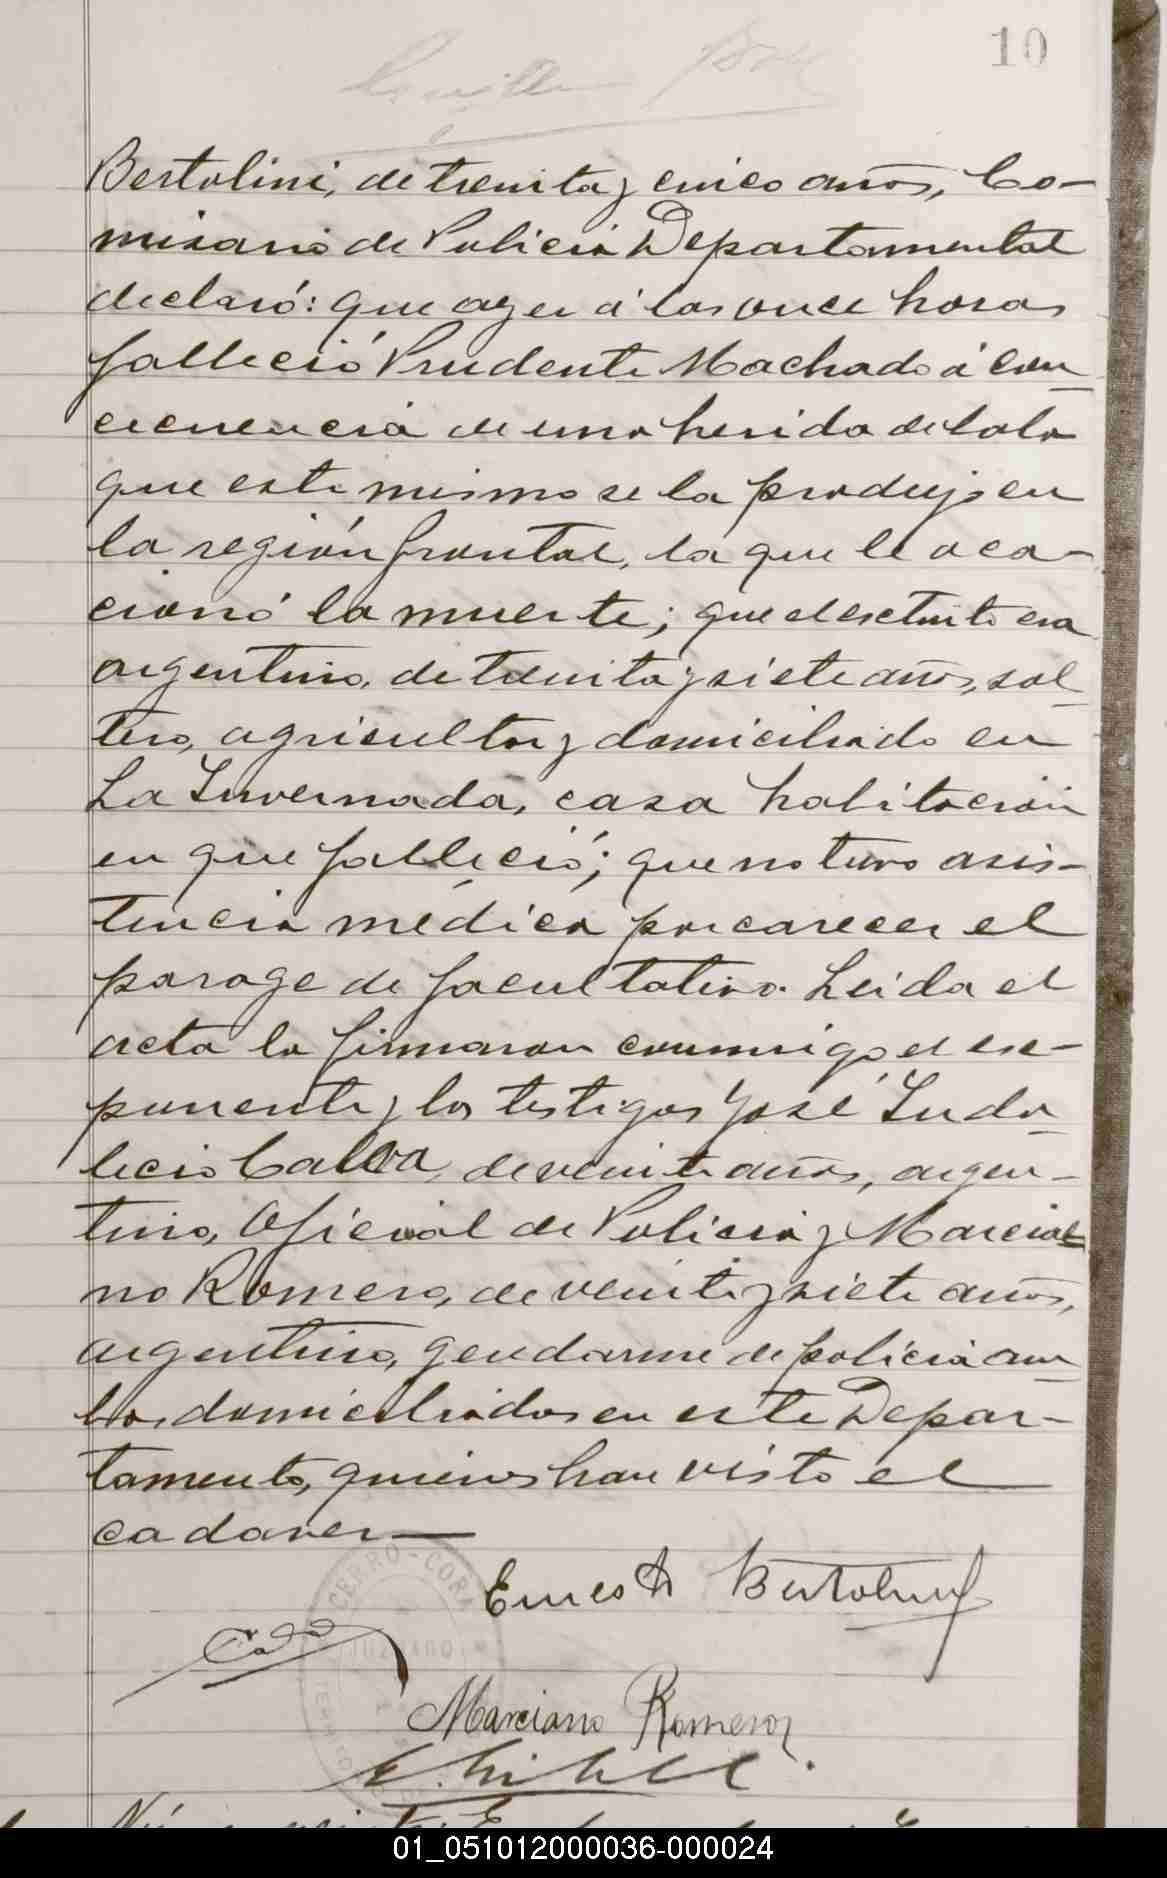 10
Bertolini, de treinta y cinco años, Co-
misario de Policia Departamental
declaró: que ayer á las once horas
falleció Prudente Machado á con_
cecuencia de una herida de bala
que este mismo se la produjo en
la región frontal, la que le oca-
cionó la muerte; que el extinto era
argentino, de treinta y siete años, sol_
tero, agricultor y domiciliado en
La Invernada, casa habitación
en que falleció; que no tuvo asis-
tencia médica por carecer el
parage de facultativo. Leida el
acta la firmaron conmigo el ex-
ponente y los testigos José Inda_
lecio Calva, de veinte años, argen-
tino, Oficial de Policia y Marcia
no Romero, de veinte y siete años,
argentino, gendarme de policia am_
bos domiciliados en este Depar-
tamento, quienes han visto el
cadaver—
CERRO-CORA
JUZGADO
Ernesto Bertolini
Marciano Romero
01_051012000036-000024